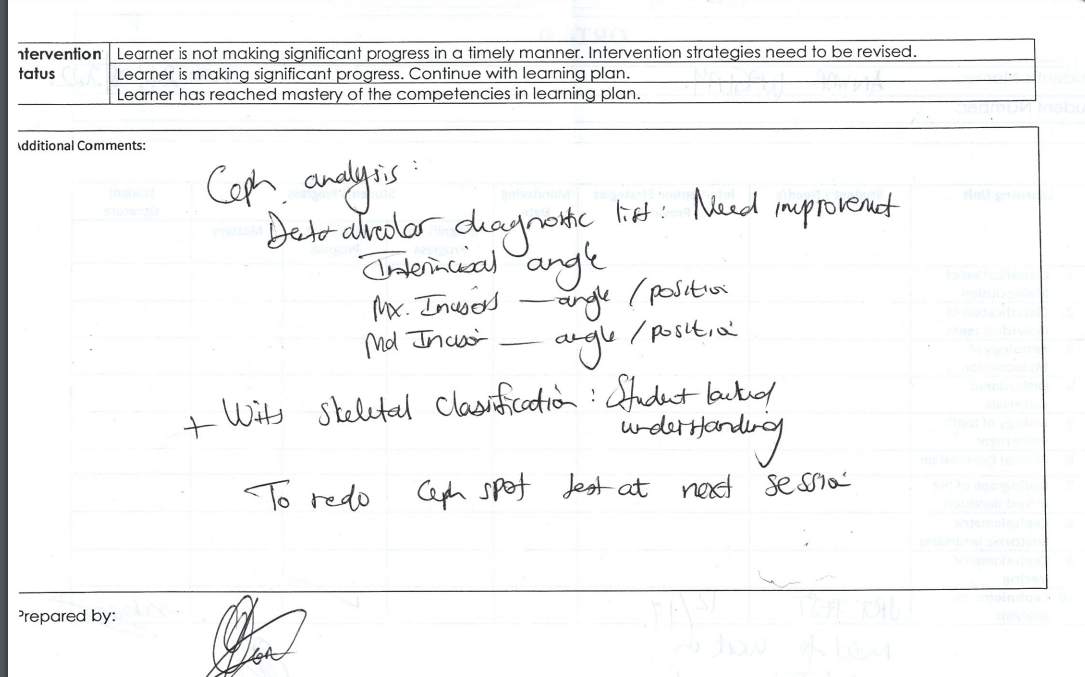 ntervention
tatus
Learner is not making significant progress in a timely manner. Intervention strategies need to be revised.
Learner is making significant progress. Continue with learning plan.
Learner has reached mastery of the competencies in learning plan.
Additional Comments:
Ceph analysis :
Dento alveolar diagnostic list : Need improvement
Interincisal angle
Mx. Incisors — angle / position
Md Incisor — angle / position
+ Wits skeletal classification : Student lacked
understanding
To redo Ceph spot test at next session
Prepared by: